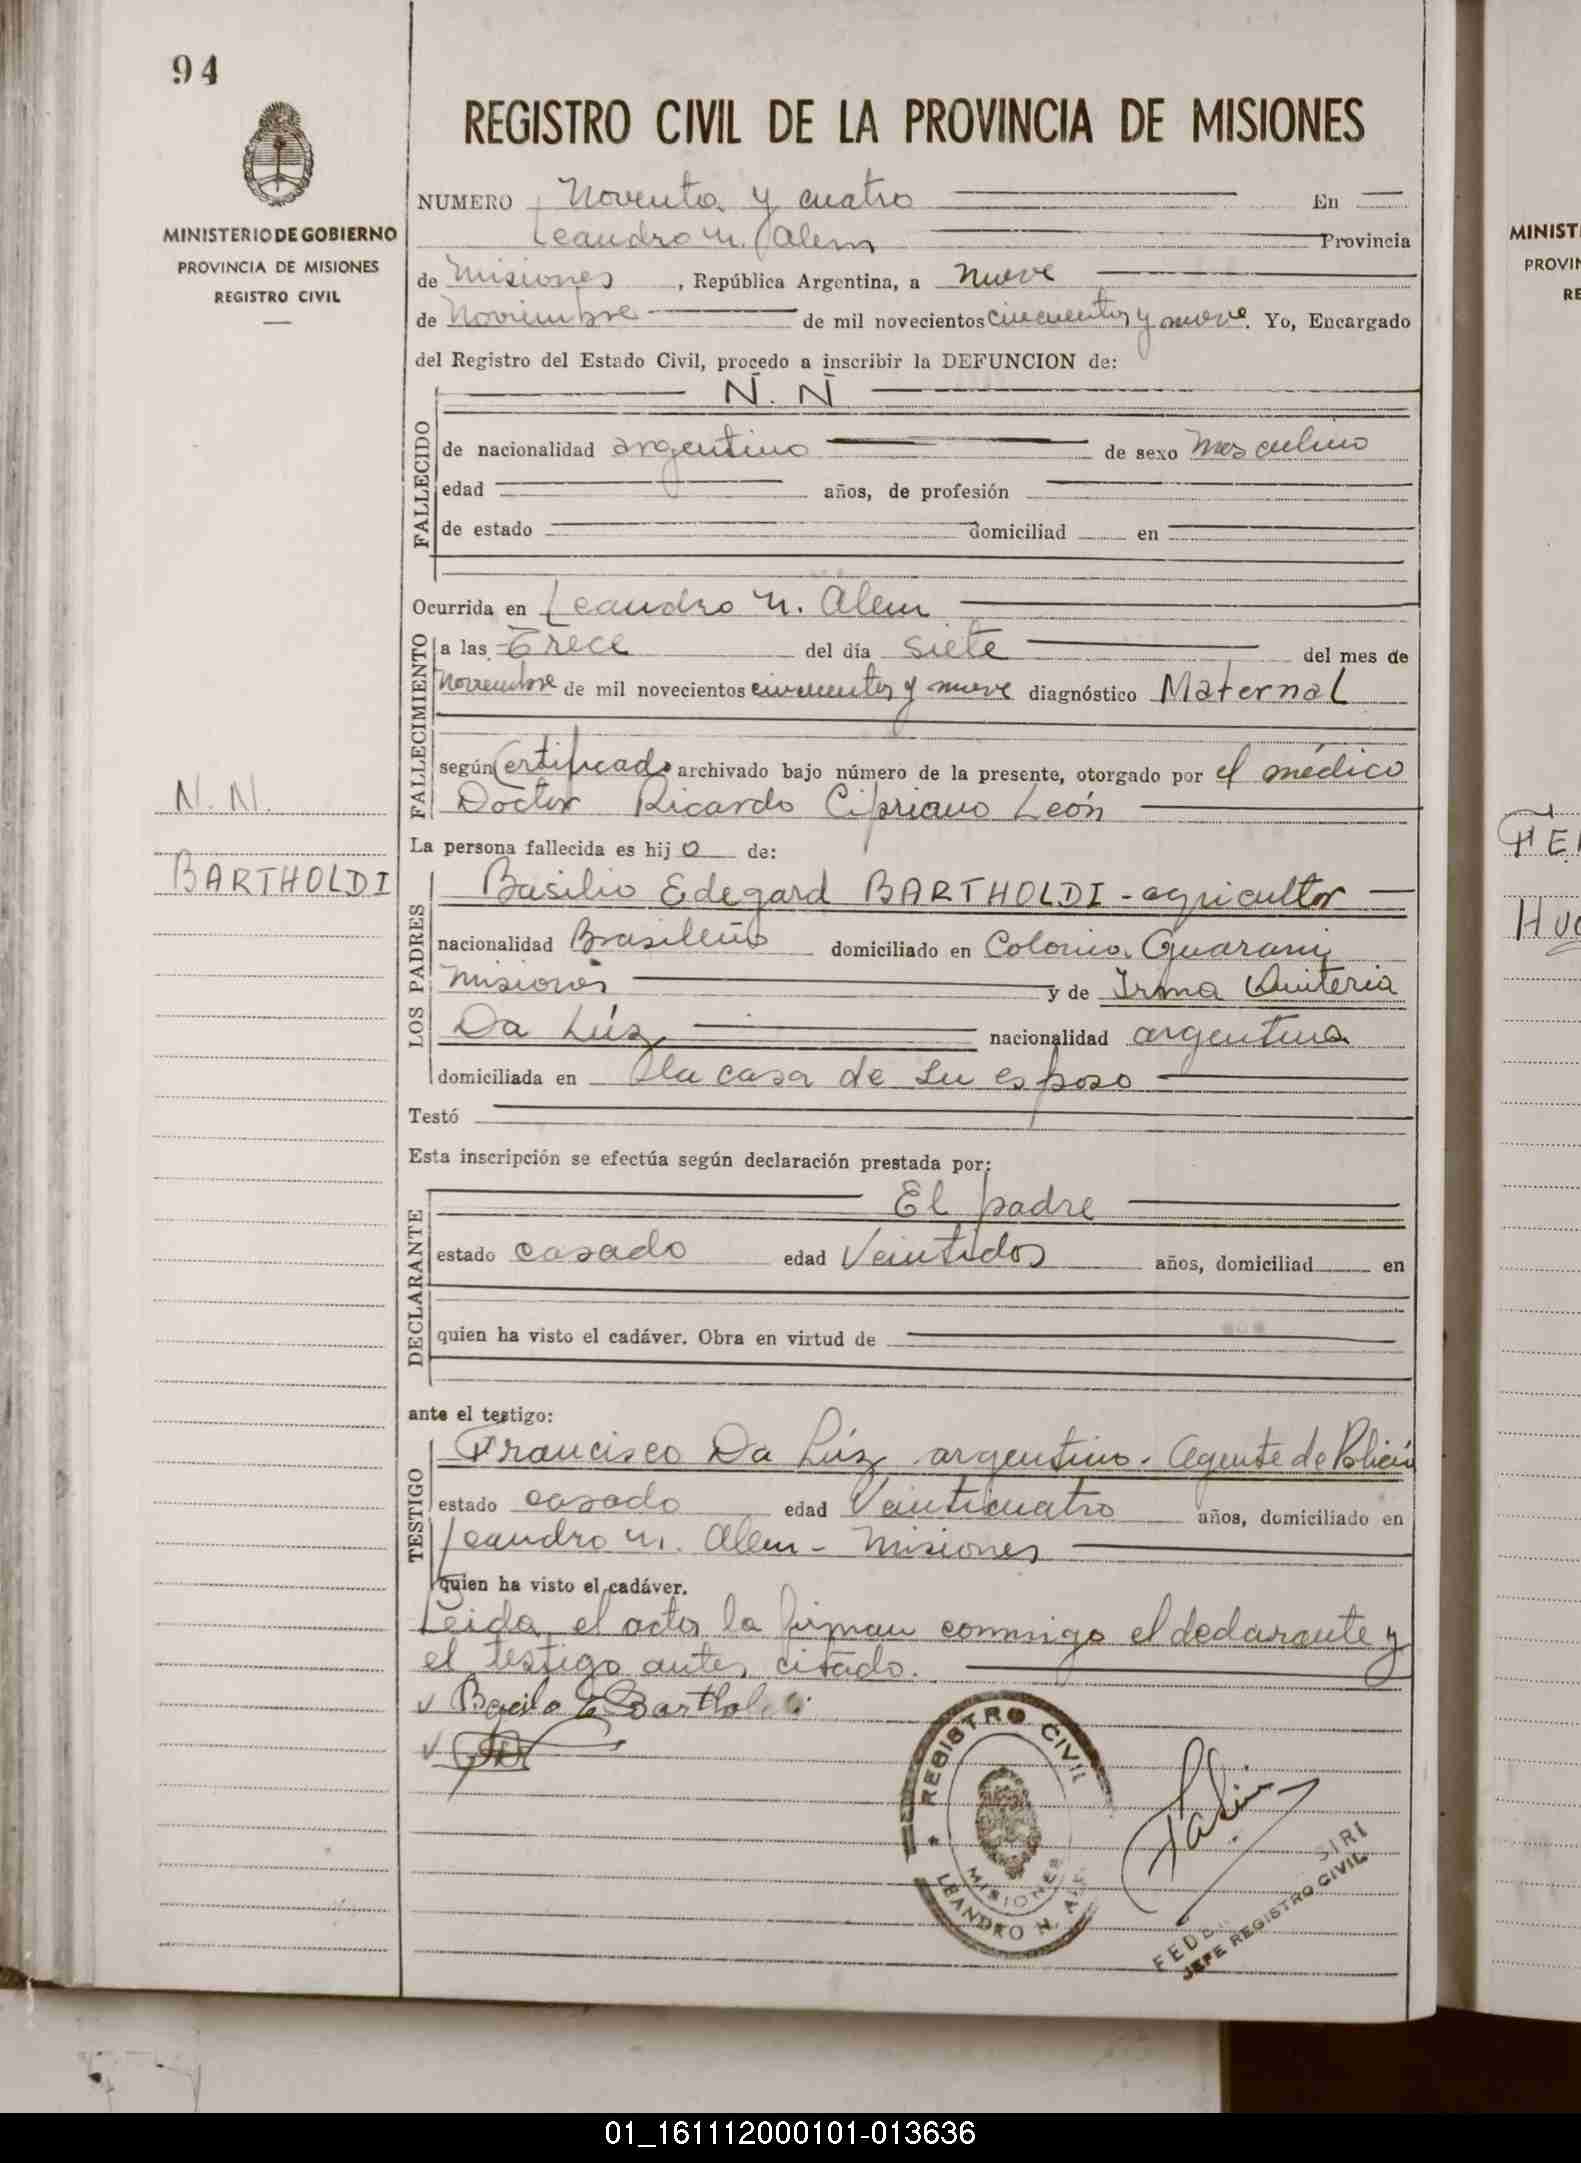 94
MINISTERIO DE GOBIERNO
PROVINCIA DE MISIONES
REGISTRO CIVIL
N. N.
BARTHOLDI
REGISTRO CIVIL DE LA PROVINCIA DE MISIONES
NUMERO Noventa y cuatro En
Leandro N. Alem Provincia
de Misiones, República Argentina, a nueve
de Noviembre de mil novecientos cincuenta y nueve. Yo, Encargado
del Registro del Estado Civil, procedo a inscribir la DEFUNCION de:
N. N
FALLECIDO
de nacionalidad argentino de sexo masculino
edad años, de profesión
de estado domiciliad en
Ocurrida en Leandro N. Alem
FALLECIMIENTO
a las Trece del día siete del mes de
Noviembre de mil novecientos cincuenta y nueve diagnóstico Maternal
según Certificado archivado bajo número de la presente, otorgado por el médico
Doctor Ricardo Cipriano León
La persona fallecida es hijo de:
LOS PADRES
Basilio Edegard BARTHOLDI - agricultor
nacionalidad Brasileño domiciliado en Colonia Guarani
Misiones y de Irma Quiteria
Da Lúz nacionalidad argentina
domiciliada en la casa de su esposo
Testó
Esta inscripción se efectúa según declaración prestada por:
DECLARANTE
El padre
estado casado edad Veintidos años, domiciliad en
quien ha visto el cadáver. Obra en virtud de
ante el testigo:
TESTIGO
Francisco Da Lúz argentino. Agente de Policía
estado casado edad Veinticuatro años, domiciliado en
Leandro N. Alem - Misiones
quien ha visto el cadáver.
Leida el acta la firman conmigo el declarante y
el testigo antes citado.
REGISTRO CIVIL
MISIONES
LEANDRO N.
SIRI
JEFE REGISTRO CIVIL
MINIST
PROVIN
RE
01_161112000101-013636